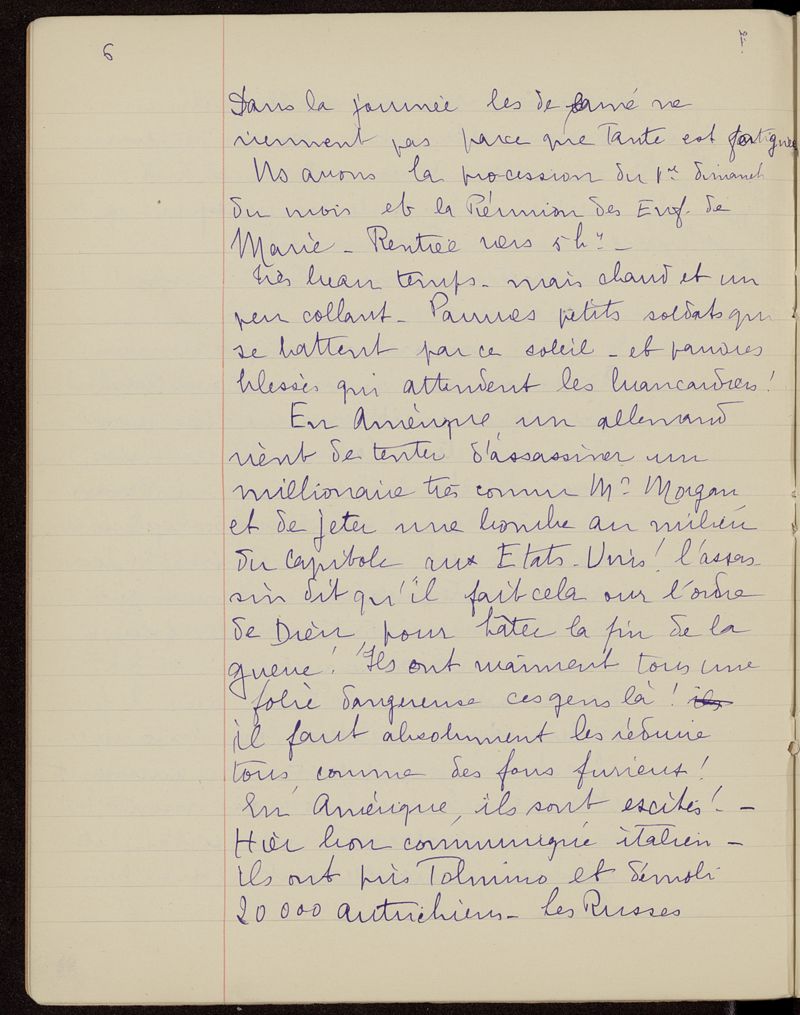 6
Dans la journée les de ne
viennent pas parce que Tante est fatiguée
Ns avons la procession du 1er dimanch
du mois et la Réunion des Enf. de
Marie - Rentrée vers 5 hes -
Très beau temps - mais chaud et un
peu collant - Pauvres petits soldats qui
se battent par ce soleil - et pauvres
blessés qui attendent les brancardiers !
En Amérique, un allemand
vient de tenter d'assassiner un
millionaire très connu Mr Morgan
et de jeter une bombe au milieu
du Capitole aux Etats-Unis ! l'assas
sin dit qu'il fait cela sur l'ordre
de Dieu pour hâter la fin de la
guerre ! Ils ont vraiment tous une
folie dangereuse ces gens là ! ils
il faut absolument les réduire
tous comme des fous furieux !
En Amérique, ils sont excités ! -
Hier bon communiqué italien -
ils ont pris Tolmino et démoli
20 000 autrichiens - les Russes